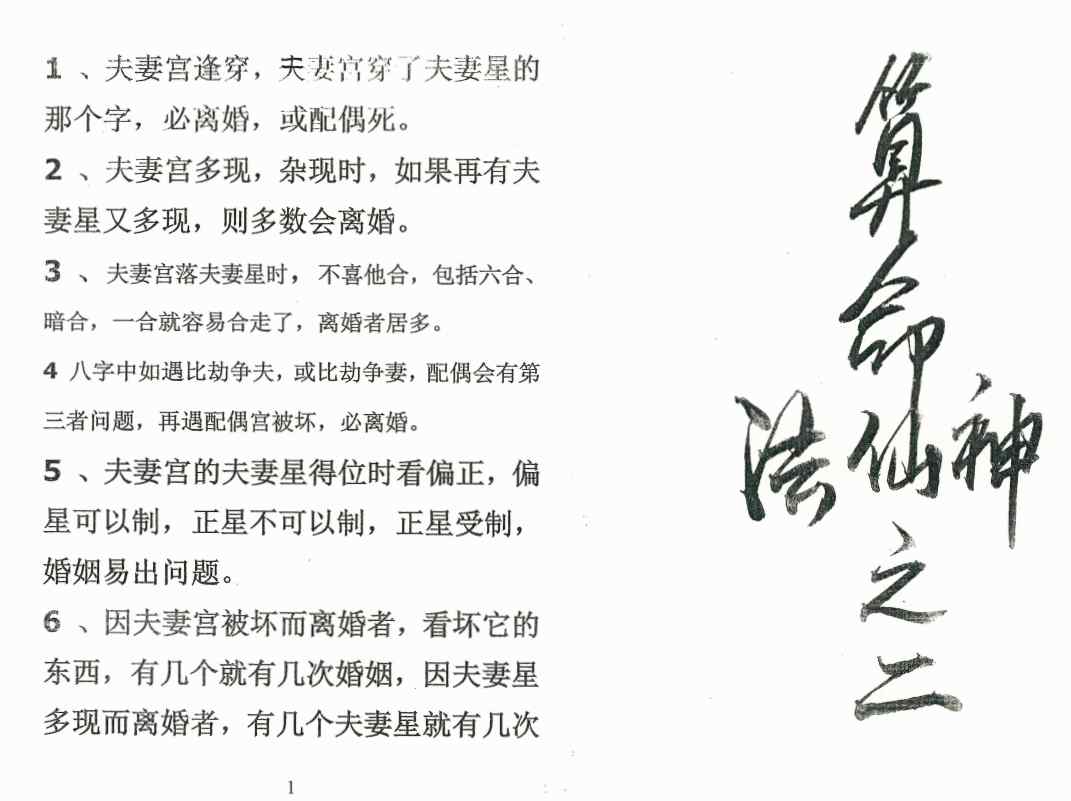 1 、夫妻宫逢穿，夫妻宫穿了夫妻星的
那个字，必离婚，或配偶死。
2 、夫妻宫多现，杂现时，如果再有夫
妻星又多现，则多数会离婚。
3 、夫妻宫落夫妻星时，不喜他合，包括六合、
暗合，一合就容易合走了，离婚者居多。
4 八字中如遇比劫争夫，或比劫争妻，配偶会有第
三者问题，再遇配偶宫被坏，必离婚。
5 、夫妻宫的夫妻星得位时看偏正，偏
星可以制，正星不可以制，正星受制，
婚姻易出问题。
6 、因夫妻宫被坏而离婚者，看坏它的
东西，有几个就有几次婚姻，因夫妻星
多现而离婚者，有几个夫妻星就有几次
1
算命
神仙法
之二